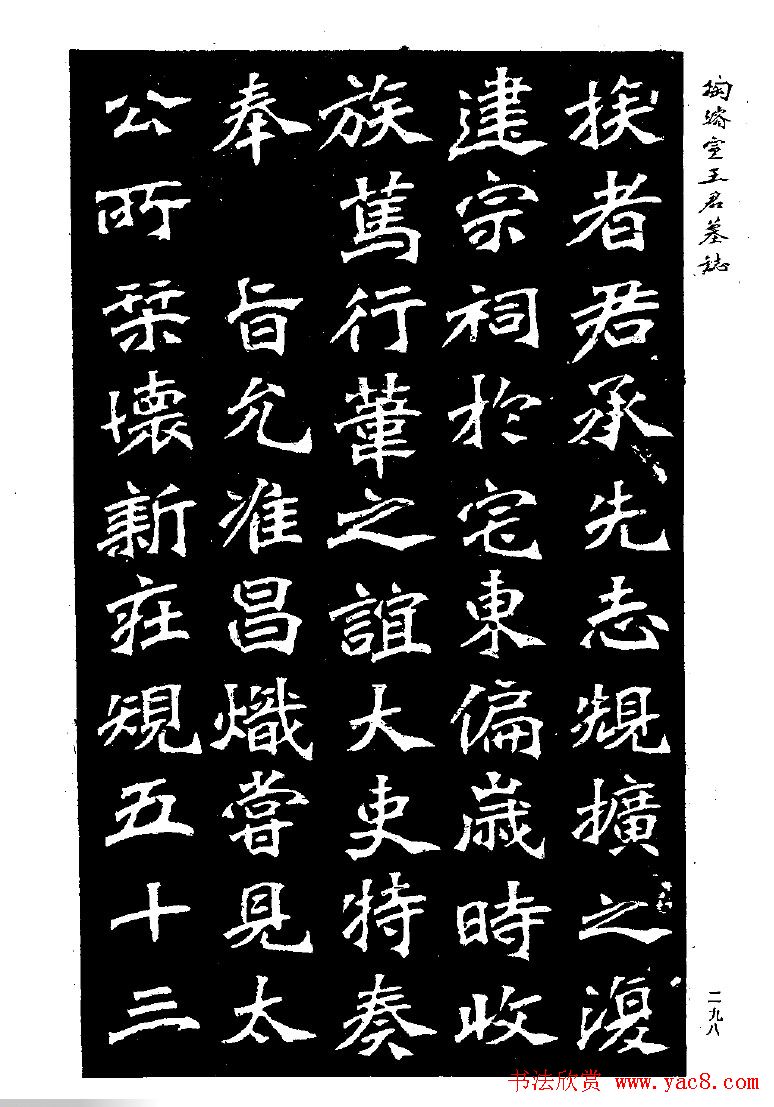 陶濬宣王君墓誌
挨者君承先志規擴之復
建宗祠於宅東偏歲時收
族篤行葦之誼大吏特奏
奉旨允准昌熾嘗見太
公所栞壞新莊規五十三
二九八
书法欣赏 www.yac8.com